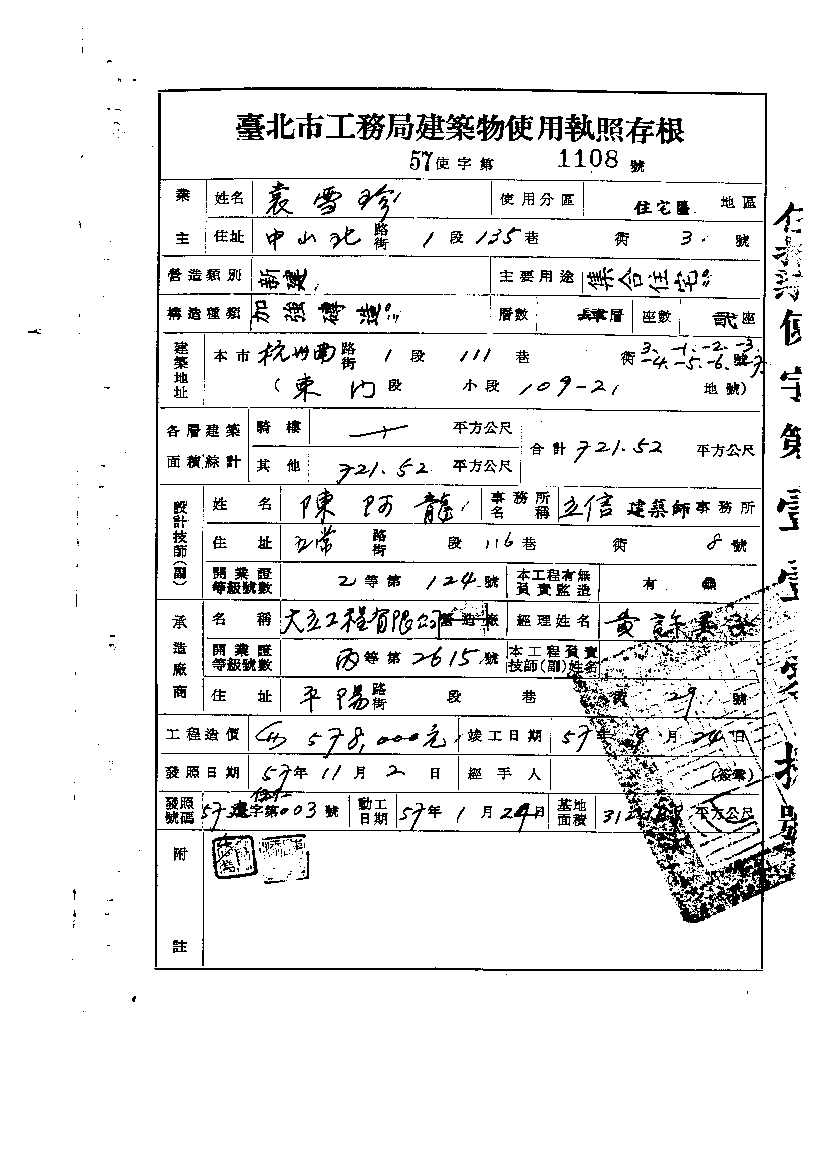 臺北市工務局建築物使用執照存根
57使字第 1108 號
業主 姓名 袁雪珍 使用分區 住宅區 地區
住址 中山北路街 1段135巷 衖 3. 號
營造類別 新建 主要用途 集合住宅
構造種類 加強磚造 層數 層 座數 座
建築地址 本市杭州南路街 1段 111巷 衖 3. -1. -2. -3 號
-4. -5. -6. -7
(東門段 小段 109-21 地號)
各層建築面積綜計 騎樓 平方公尺 合計 721.52 平方公尺
其他 721.52 平方公尺
設計技師(副) 姓名 陳阿龍 事務所名稱 立信建築師事務所
住址 五常路街 段 116巷 衖 8號
開業證等級號數 2等第 124號 本工程有無負責監造 有 無
承造廠商 名稱 大立工程有限公司營造廠 經理姓名 黃許
開業證等級號數 丙等第 2615號 本工程負責技師(副)姓名
住址 平陽路街 段 巷 衖 29 號
工程造價 578,000元 竣工日期 57年9月24日
發照日期 57年11月2日 經手人 (簽章)
發照號碼 57建字第003號 動工日期 57年1月24日 基地面積 312 平方公尺
附註
使字第壹壹 號